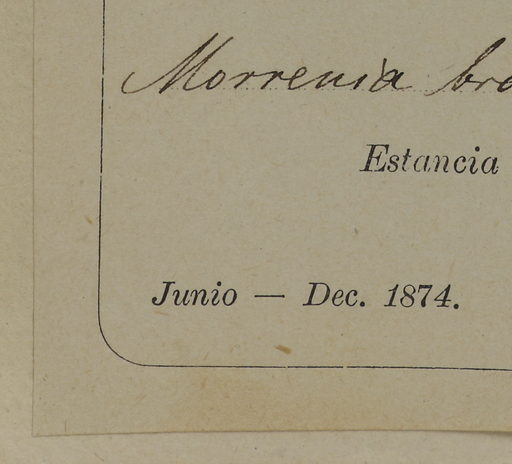 Morrenia bra
Estancia
Junio — Dec. 1874.